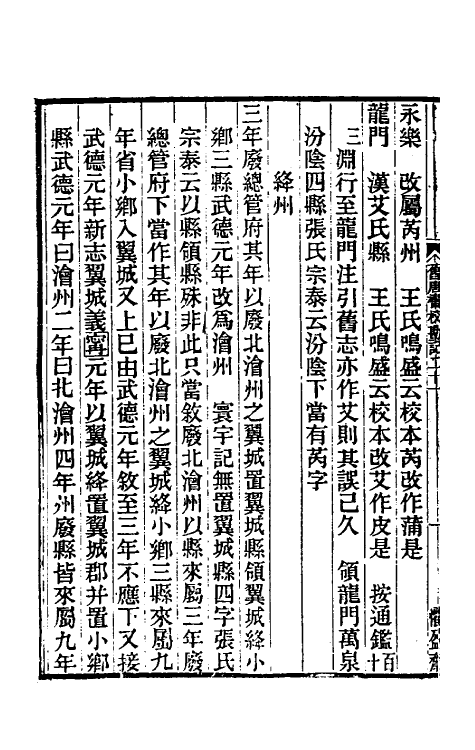 永樂　改屬芮州　王氏鳴盛云校本芮改作蒲是
龍門　漢艾氏縣　王氏鳴盛云校本改艾作皮是　按通鑑百十
三淵行至龍門注引舊志亦作艾則其誤已久　領龍門萬泉
汾陰四縣張氏宗泰云汾陰下當有芮字
絳州
三年廢總管府其年以廢北澮州之翼城置翼城縣領翼城絳小
鄉三縣武德元年改爲澮州　寰宇記無置翼城縣四字張氏
宗泰云以縣領縣殊非此只當敘廢北澮州以縣來屬三年廢
總管府下當作其年以廢北澮州之翼城絳小鄉三縣來屬九
年省小鄉入翼城又上已由武德元年敘至三年不應下又接
武德元年新志翼城義寧元年以翼城絳置翼城郡并置小鄉
縣武德元年曰澮州二年曰北澮州四年州廢縣皆來屬九年